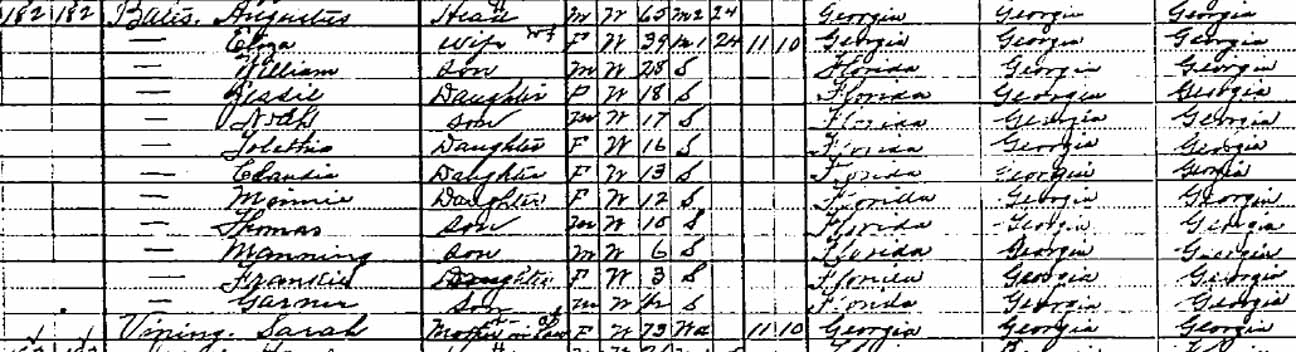 182 182 Bates, Augustus Head M W 65 M2 24 Georgia Georgia Georgia
— Eliza Wife F W 39 M1 24 11 10 Georgia Georgia Georgia
— William Son M W 28 S Florida Georgia Georgia
— Jessie Daughter F W 18 S Florida Georgia Georgia
— Noah Son M W 17 S Florida Georgia Georgia
— Daughter F W 16 S Florida Georgia Georgia
— Claudia Daughter F W 13 S Florida Georgia Georgia
— Minnie Daughter F W 12 S Florida Georgia Georgia
— Thomas Son M W 10 S Florida Georgia Georgia
— Manning Son M W 6 S Florida Georgia Georgia
— Frankie Daughter F W 3 S Florida Georgia Georgia
— Garner Son M W S Florida Georgia Georgia
Vining, Sarah Mother in Law F W 73 Wd 11 10 Georgia Georgia Georgia